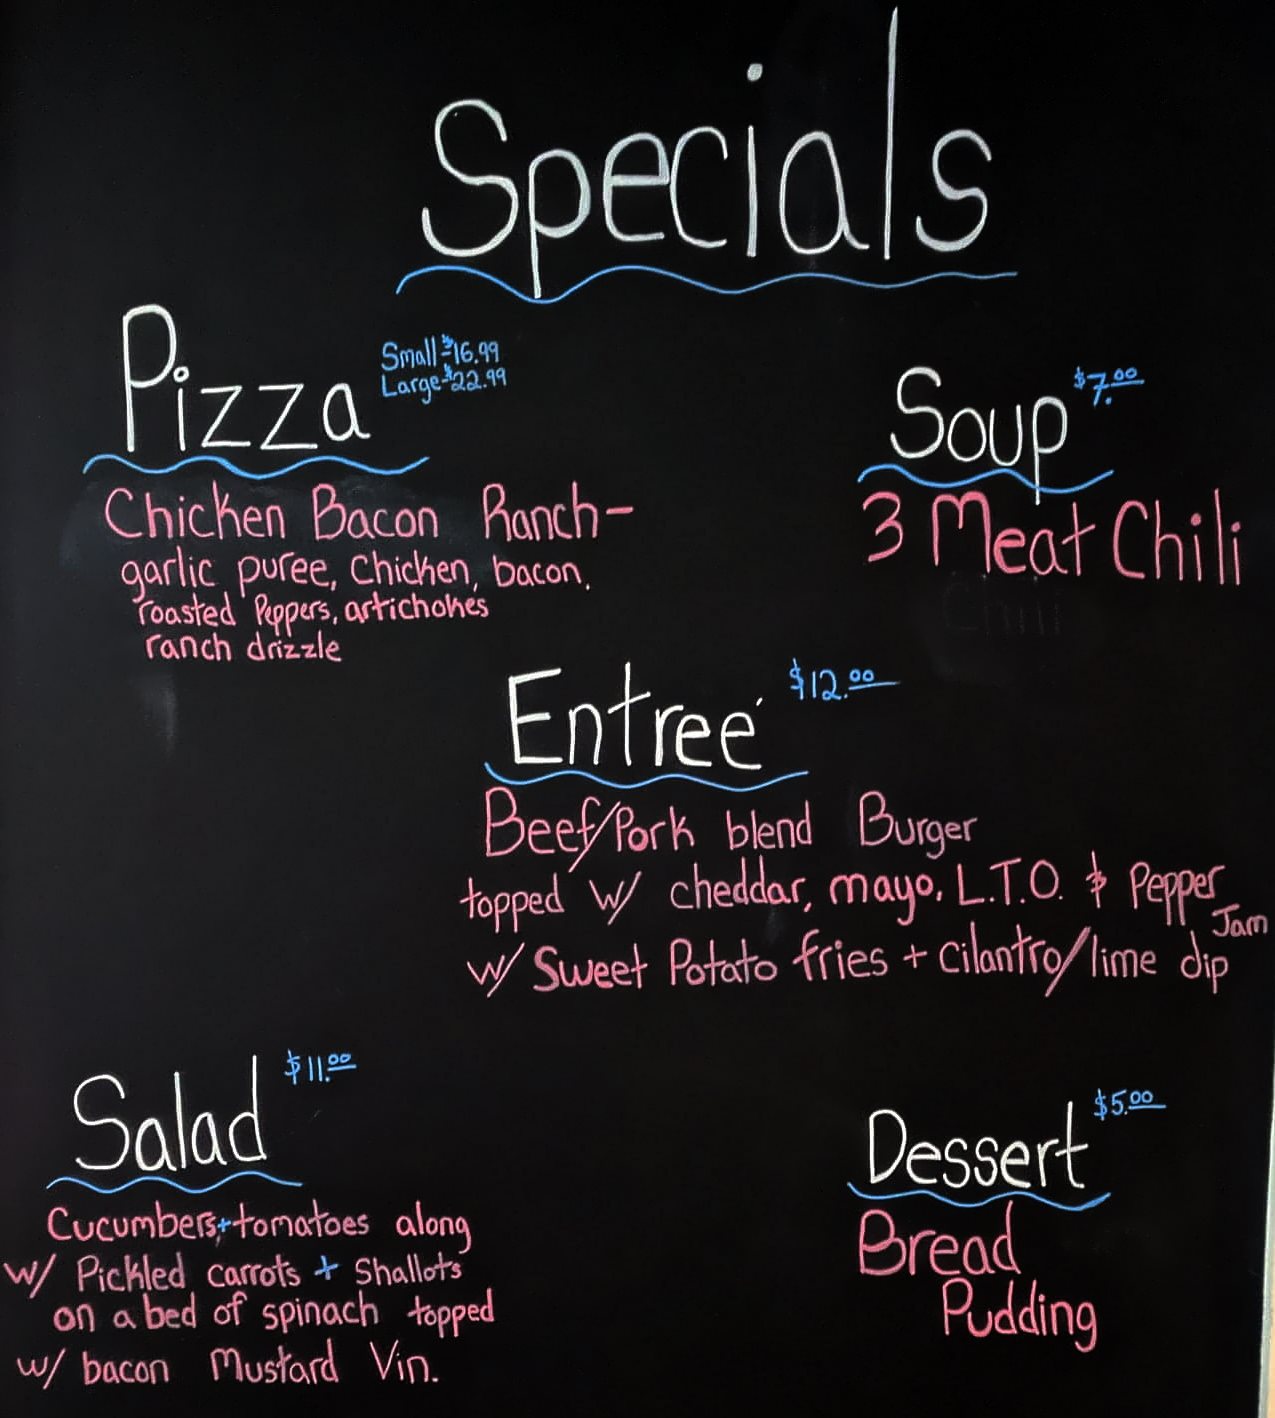 Specials
Pizza
Small-$16.99
Large-$22.99
Chicken Bacon Ranch-
garlic puree, Chicken, bacon,
roasted Peppers, artichokes
ranch drizzle
Soup $7.00
3 Meat Chili
Entreé $12.00
Beef/Pork blend Burger
topped w/ cheddar, mayo, L.T.O. & Pepper
Jam
w/ Sweet Potato fries + Cilantro/lime dip
Salad $11.00
Cucumbers + tomatoes along
w/ Pickled carrots + Shallots
on a bed of spinach topped
w/ bacon Mustard Vin.
Dessert $5.00
Bread
Pudding